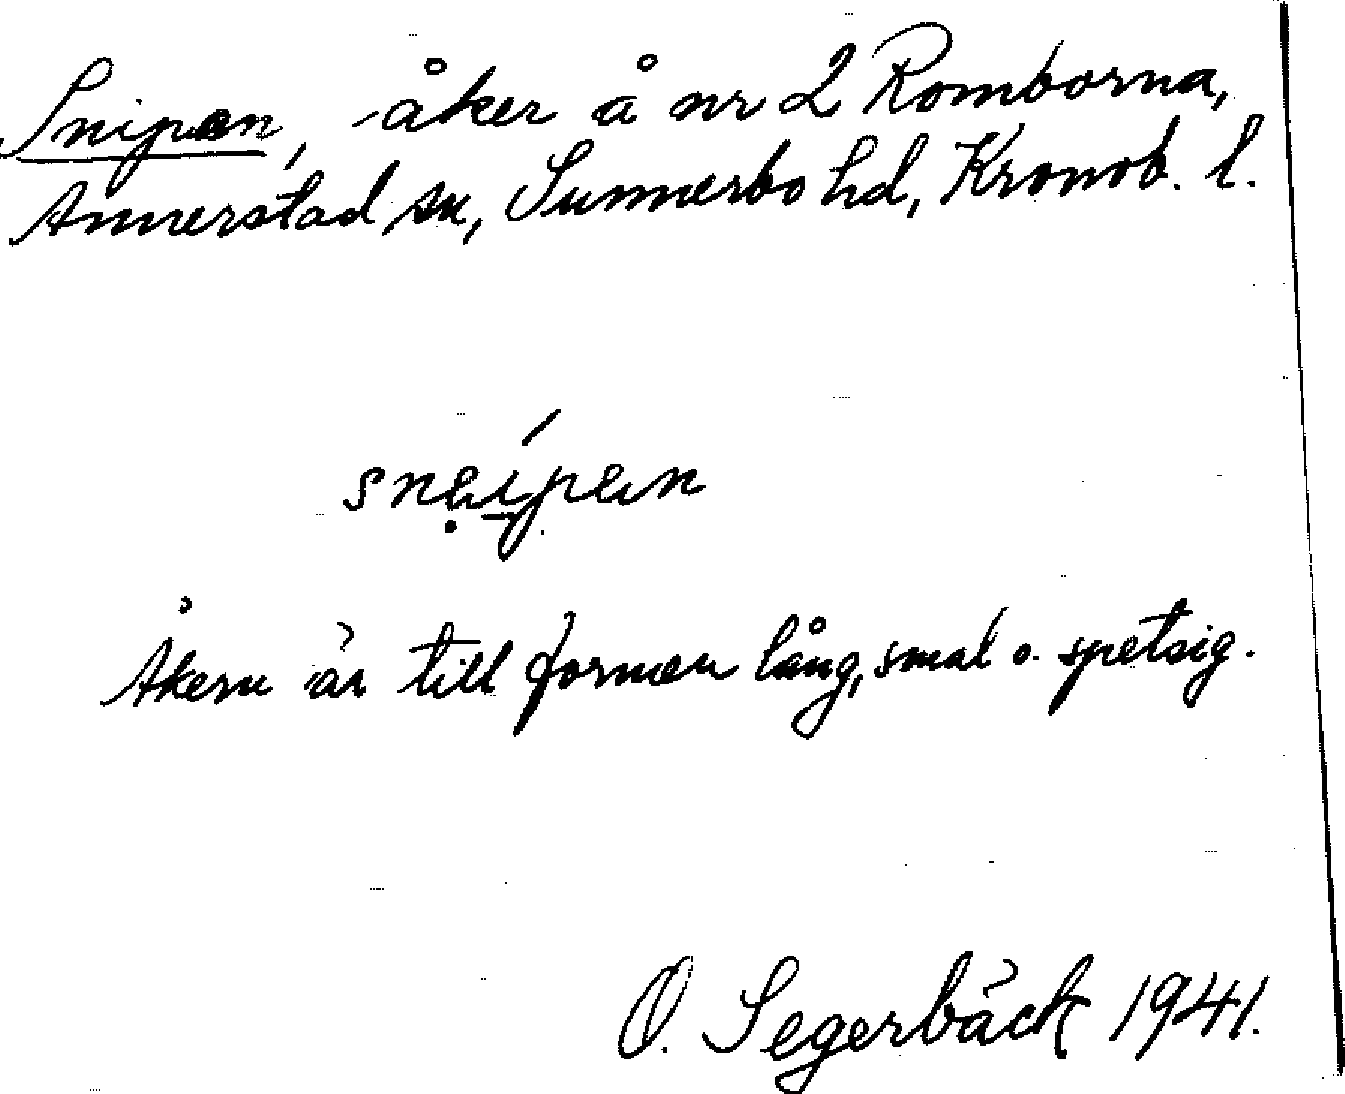 Snipen, åker å nr 2 Romborna,
Annerstad sn, Sunnerbo hd, Kronob. l.
sneipen
Åkern är till formen lång, smal o. spetsig.
O. Segerbäck 1941.